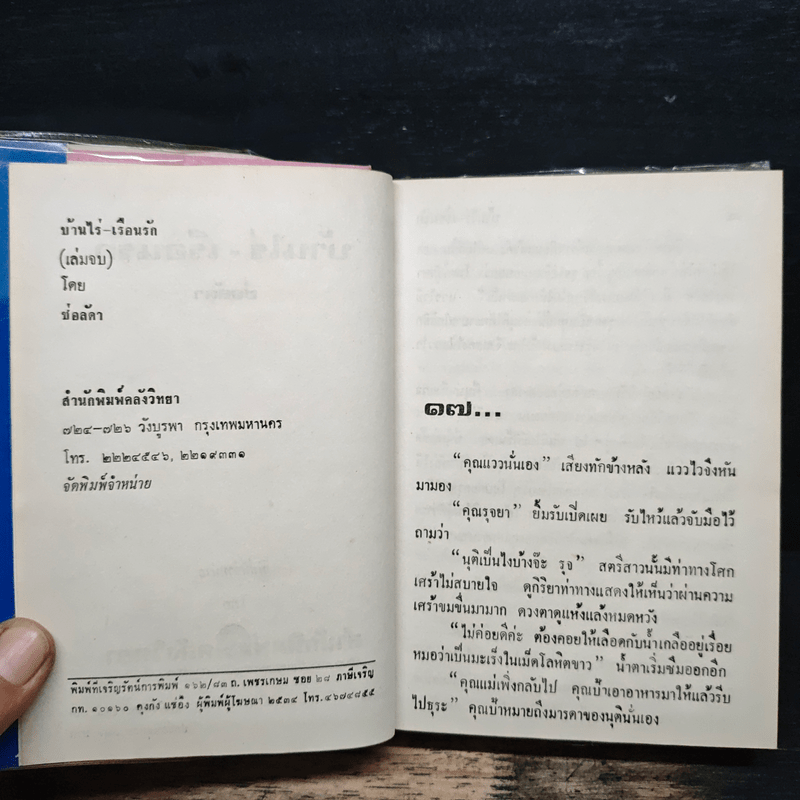 บ้านไร่-เรือนรัก
(เล่มจบ)
โดย
ช่อลัดา
สำนักพิมพ์คลังวิทยา
๗๒๔-๗๒๖ วังบูรพา กรุงเทพมหานคร
โทร. ๒๒๒๔๕๔๖, ๒๒๑๙๓๓๑
จัดพิมพ์จำหน่าย
พิมพ์ที่เจริญรัตน์การพิมพ์ ๑๖๒/๘๓ ถ. เพชรเกษม ซอย ๒๘ ภาษีเจริญ
กท. ๑๐๑๖๐ คุงกัง แซ่อึง ผู้พิมพ์ผู้โฆษณา ๒๕๓๔ โทร. ๔๖๗๔๘๕๕
๑๗...
“คุณแววนั่นเอง” เสียงทักข้างหลัง แววไวจึงหัน
มามอง
“คุณรุจยา” ยิ้มรับเปิดเผย รับไหว้แล้วจับมือไว้
ถามว่า
“นุติเป็นไงบ้างจ๊ะ รุจ” สตรีสาวนั้นมีท่าทางโศก
เศร้าไม่สบายใจ ดูกิริยาท่าทางแสดงให้เห็นว่าผ่านความ
เศร้าขมขื่นมามาก ดวงตาดูแห้งแล้งหมดหวัง
“ไม่ค่อยดีค่ะ ต้องคอยให้เลือดกับน้ำเกลืออยู่เรื่อย
หมอว่าเป็นมะเร็งในเม็ดโลหิตขาว” น้ำตาเริ่มซึมออกอีก
“คุณแม่เพิ่งกลับไป คุณป้าเอาอาหารมาให้แล้วรีบ
ไปธุระ” คุณป้าหมายถึงมารดาของนุตินั่นเอง